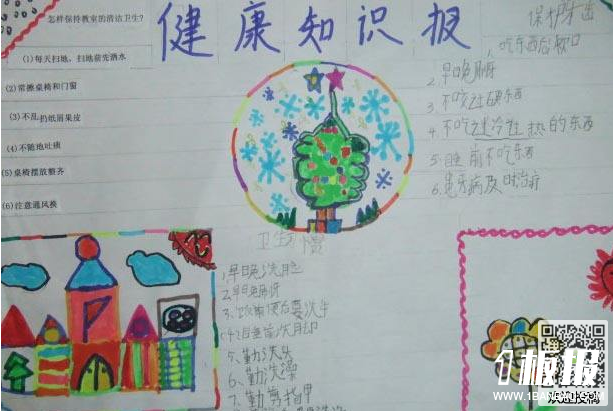 健康知识报
怎样保持教室的清洁卫生?
(1)每天扫地,扫地前先洒水
(2)常擦桌椅和门窗
(3)不乱扔纸屑果皮
(4)不随地吐痰
(5)桌椅摆放整齐
(6)注意通风换
保护牙齿
1、吃东西后漱口
2、早晚刷牙
3、不咬过硬东西
4、不吃过冷过热的东西
5、睡前不吃东西
6、患牙病及时治疗
卫生习惯
1、早晚洗脸
2、早晚刷牙
3、饭前便后要洗手
4、睡前洗脚
5、勤洗头
6、勤洗澡
7、勤剪指甲
1板报
WWW.1BANBAO.COM
欢迎投稿